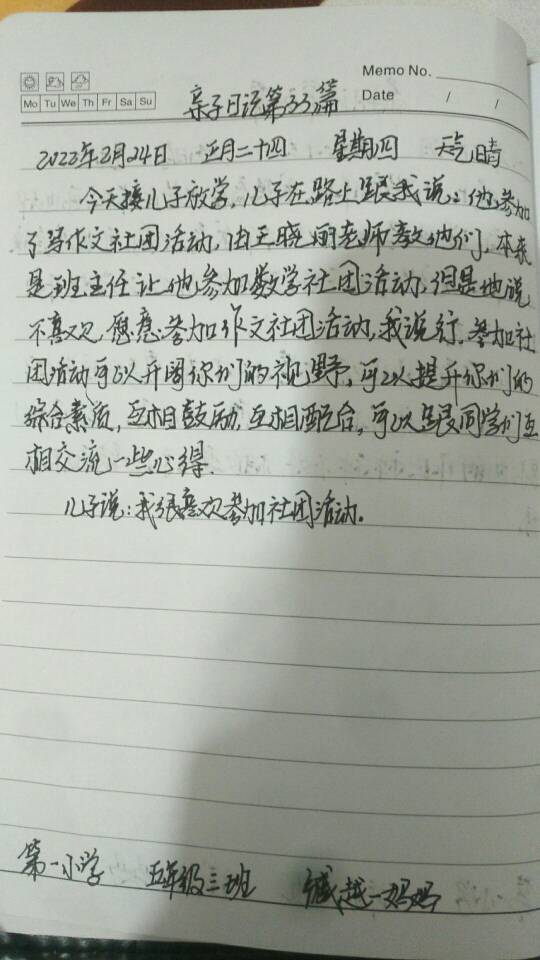 Memo No.
Mo Tu We Th Fr Sa Su
Date / /
亲子日记第33篇
2022年2月24日 正月二十四 星期四 天气晴
今天接儿子放学,儿子在路上跟我说:他参加
了写作文社团活动,由王晓丽老师教他们,本来
是班主任让他参加数学社团活动,但是他说
不喜欢,愿意参加作文社团活动,我说行,参加社
团活动可以开阔你们的视野,可以提升你们的
综合素质,互相鼓励,互相配合,可以跟同学们互
相交流一些心得.
儿子说:我很喜欢参加社团活动.
第一小学 五年级三班 臧越一妈妈